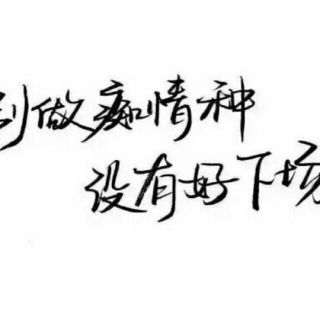 别做痴情种
没有好下场